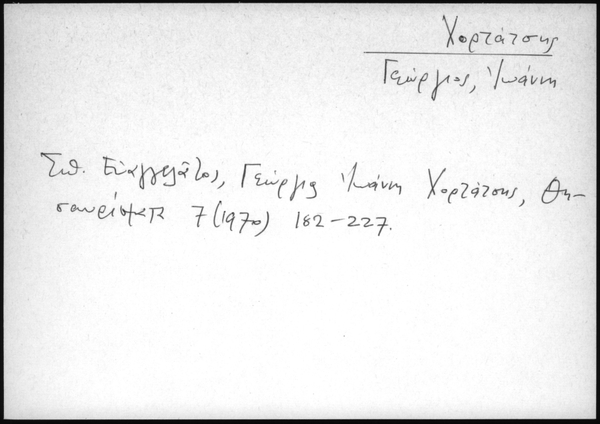 Χορτάτσης
Γεώργιος, Ἰωάννη
Σπ. Εὐαγγελᾶτος, Γεώργιος Ἰωάννη Χορτάτσης, Θη-
σαυρίσματα 7 (1970) 182-227.